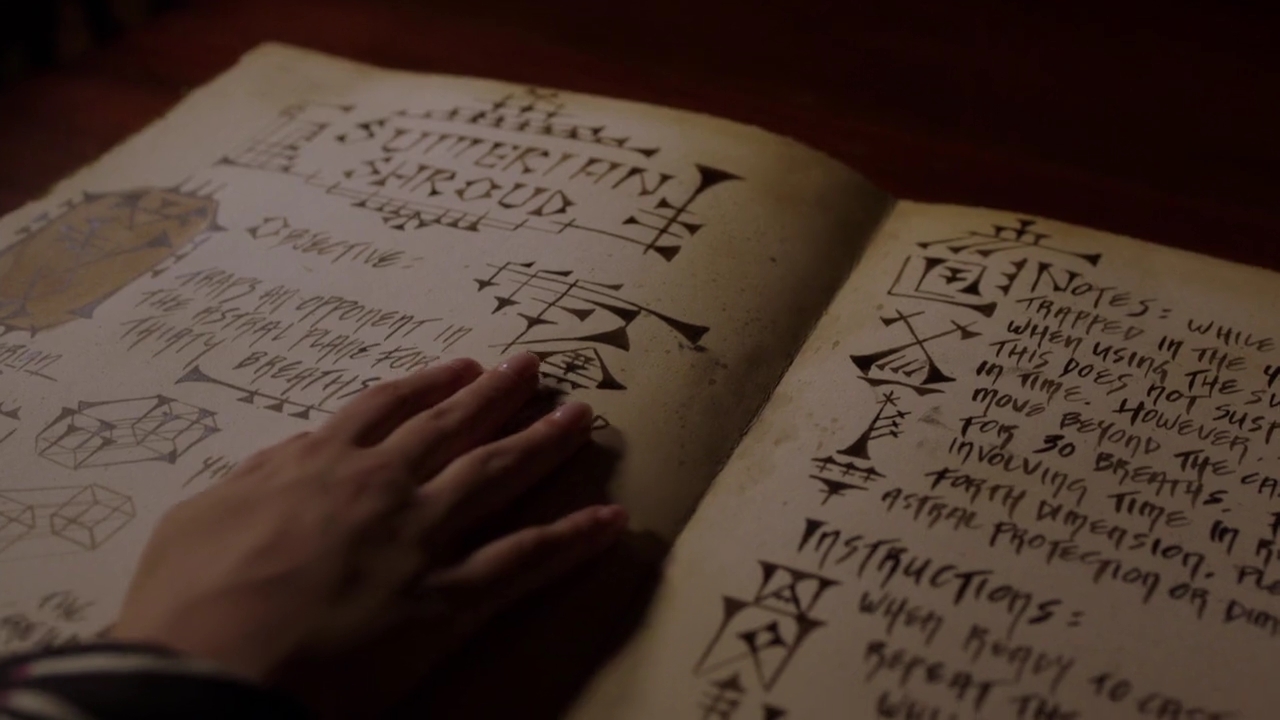 SUMERIAN
SHROUD
OBJECTIVE:
TRAPS AN OPPONENT IN
THE ASTRAL PLANE FOR
THIRTY BREATHS
THE
NOTES: WHILE
TRAPPED IN THE
WHEN USING THE
THIS DOES NOT
IN TIME. HOWEVER
MOVE BEYOND THE
FOR 30 BREATHS.
INVOLVING TIME IN
FORTH DIMENSION.
ASTRAL PROTECTION OR
INSTRUCTIONS:
WHEN READY TO CAST
REPEAT THE